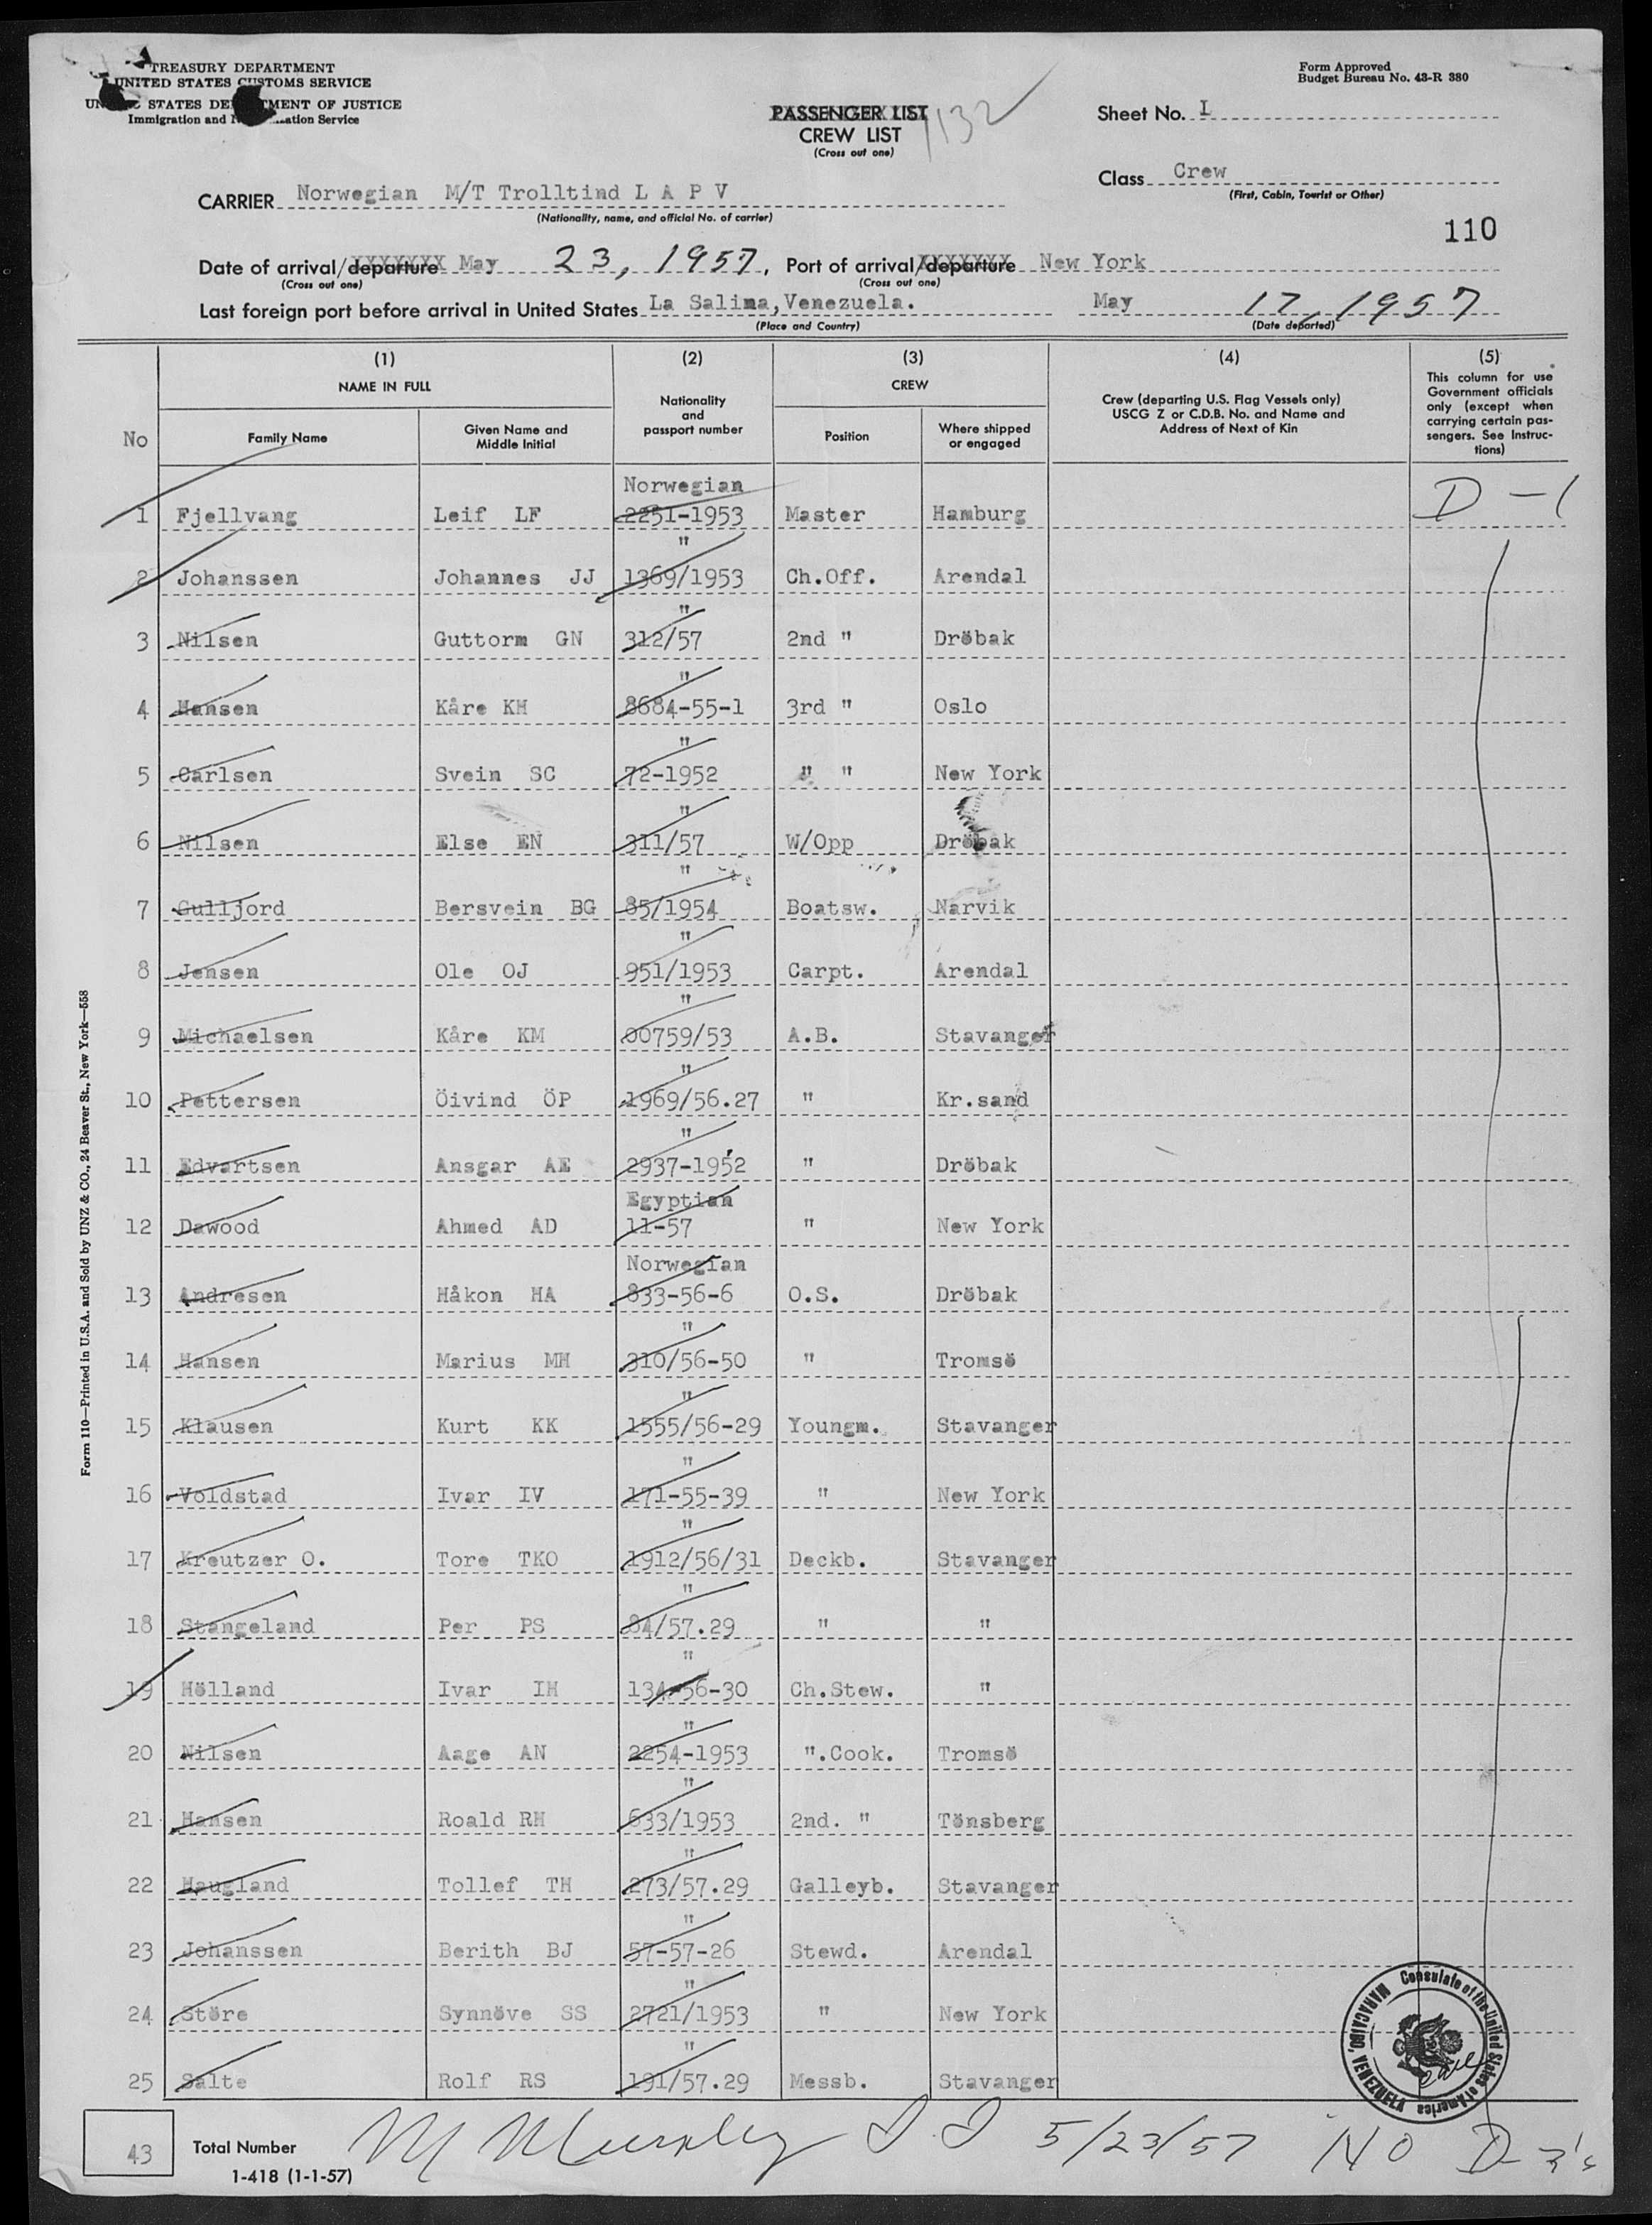 TREASURY DEPARTMENT
UNITED STATES CUSTOMS SERVICE
STATES DEPARTMENT OF JUSTICE
Immigration and Naturalization Service
Form Approved
Budget Bureau No. 43-R 380
PASSENGER LIST
CREW LIST
(Cross out one)
1132
Sheet No. I
Class Crew
(First, Cabin, Tourist or Other)
CARRIER Norwegian M/T Trolltind L A P V
(Nationality, name, and official No. of carrier)
110
Date of arrival/departure May 23, 1957, Port of arrival/departure New York
(Cross out one) (Cross out one)
Last foreign port before arrival in United States La Salina, Venezuela. May 17, 1957
(Place and Country) (Date departed)
(1) (2) (3) (4) (5)
NAME IN FULL Nationality and passport number CREW Crew (departing U.S. Flag Vessels only) USCG Z or C.D.B. No. and Name and Address of Next of Kin This column for use Government officials only (except when carrying certain passengers. See Instructions)
No Family Name Given Name and Middle Initial Position Where shipped or engaged
Norwegian
1 Fjellvang Leif LF 2251-1953 Master Hamburg D-1
"
2 Johanssen Johannes JJ 1369/1953 Ch.Off. Arendal
"
3 Nilsen Guttorm GN 312/57 2nd " Dröbak
"
4 Hansen Kåre KH 8684-55-1 3rd " Oslo
"
5 Carlsen Svein SC 72-1952 " " New York
"
6 Nilsen Else EN 311/57 W/Opp Dröbak
"
7 Gulljord Bersvein BG 85/1954 Boatsw. Narvik
"
8 Jensen Ole OJ 951/1953 Carpt. Arendal
"
9 Michaelsen Kåre KM 00759/53 A.B. Stavanger
"
10 Pettersen Öivind ÖP 1969/56.27 " Kr.sand
"
11 Edvartsen Ansgar AE 2937-1952 " Dröbak
Egyptian
12 Dawood Ahmed AD 11-57 " New York
Norwegian
13 Andresen Håkon HA 833-56-6 O.S. Dröbak
"
14 Hansen Marius MH 310/56-50 " Tromsö
"
15 Klausen Kurt KK 1555/56-29 Youngm. Stavanger
"
16 Voldstad Ivar IV 171-55-39 " New York
"
17 Kreutzer O. Tore TKO 1912/56/31 Deckb. Stavanger
"
18 Stangeland Per PS 84/57.29 " "
"
19 Hölland Ivar IH 134-56-30 Ch.Stew. "
"
20 Nilsen Aage AN 2254-1953 ".Cook. Tromsö
"
21 Hansen Roald RH 633/1953 2nd. " Tönsberg
"
22 Haugland Tollef TH 273/57.29 Galleyb. Stavanger
"
23 Johanssen Berith BJ 57-57-26 Stewd. Arendal
"
24 Störe Synnöve SS 2721/1953 " New York
"
25 Salte Rolf RS 191/57.29 Messb. Stavanger
Consulate of the United States of America
MARACAIBO, VENEZUELA
43 Total Number
1-418 (1-1-57)
5/23/57 NO D-3's
Form 110—Printed in U.S.A. and Sold by UNZ & CO., 24 Beaver St., New York—558